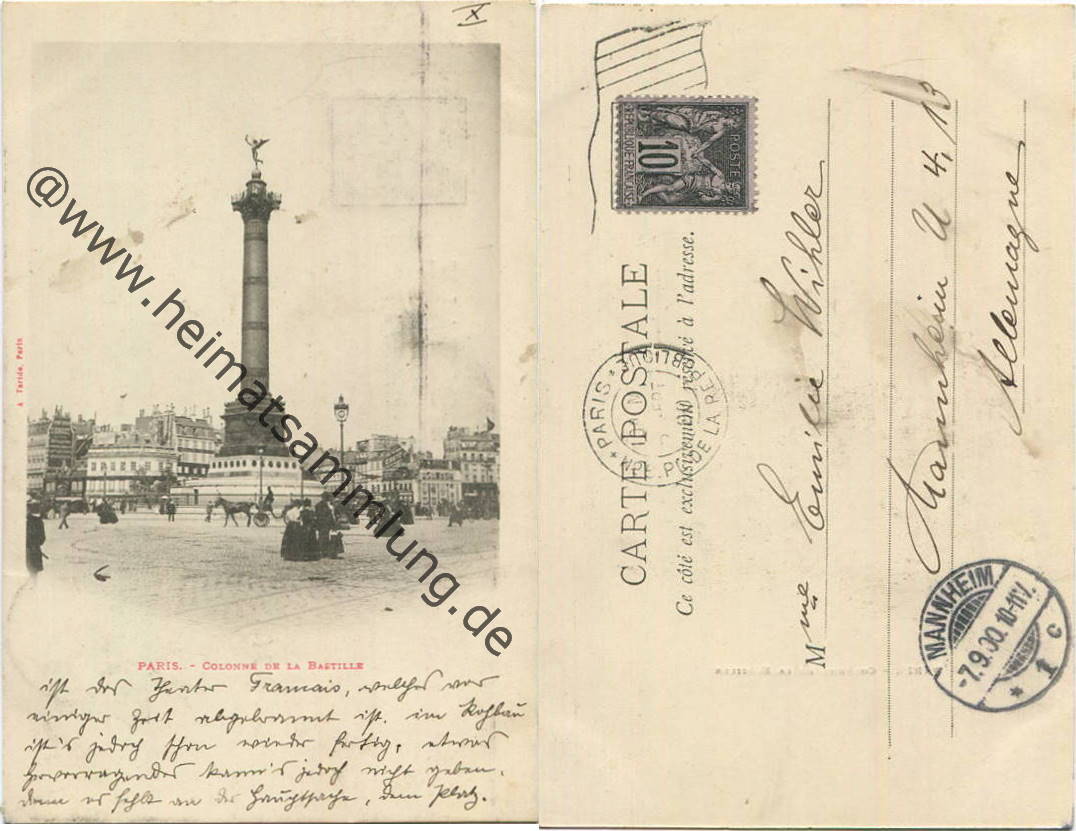 X
@www.heimatsammlung.de
A Taride, Paris
PARIS. - COLONNE DE LA BASTILLE
ist das Theater Framais, welches vor
einiger Zeit abgebrannt ist. im Rohbau
ist's jedoch schon wieder fertig, etwas
hervorragendes kann's jedoch nicht geben,
denn es fehlt an der Hauptsache, dem Platz.
POSTE
10
REPUBLIQUE FRANÇAISE
CARTE POSTALE
Ce côté est exclusivement réservé à l'adresse.
PARIS
PL. DE LA REPUBLIQUE
Mme Emilie Wihler
Mannheim U 4, 13
Allemagne
MANNHEIM
-7.9.00.10-11V.
* 1 c